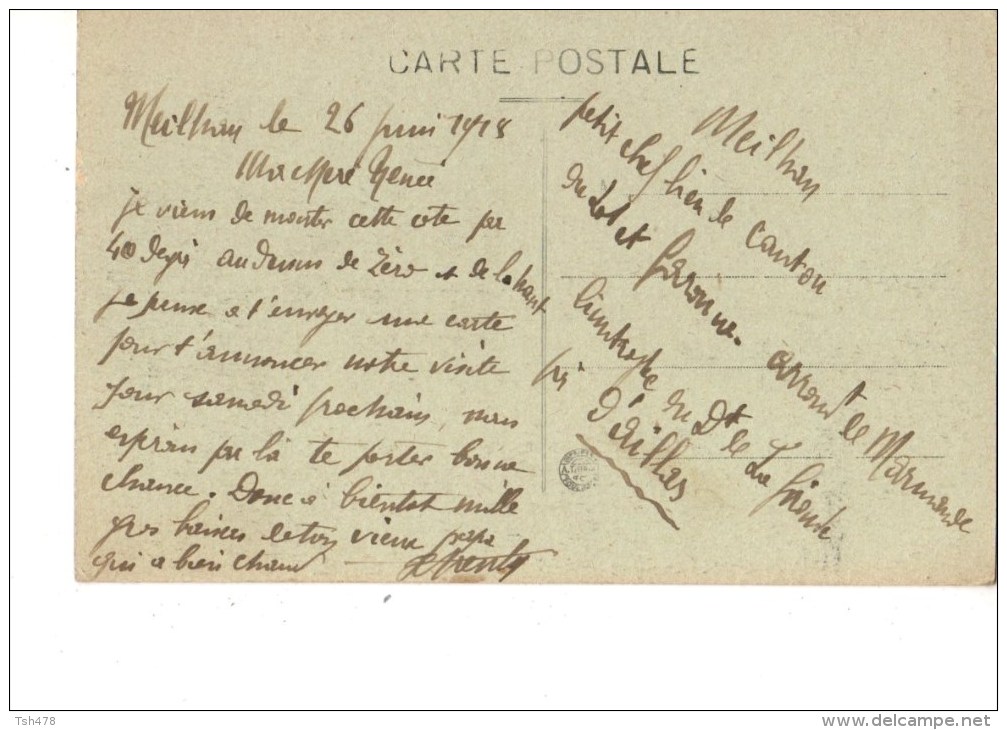 CARTE POSTALE
Meilhan le 26 juin 1918
Ma chère Renée
je viens de monter cette côte par
40 degrés au dessus de Zéro et de la haut
je pense a t'envoyer une carte
pour t'annoncer notre visite
pour samedi prochain, nous
espérons par là te porter bonne
chance. Donc à bientot mille
gros baisers de ton vieux papa
qui a bien chaud
Meilhan
petit chef lieu de canton
du Lot et Garonne. arrondt de Marmande
limitrophe du Dt de La Gironde
D'Aillas
Tsh478
www.delcampe.net